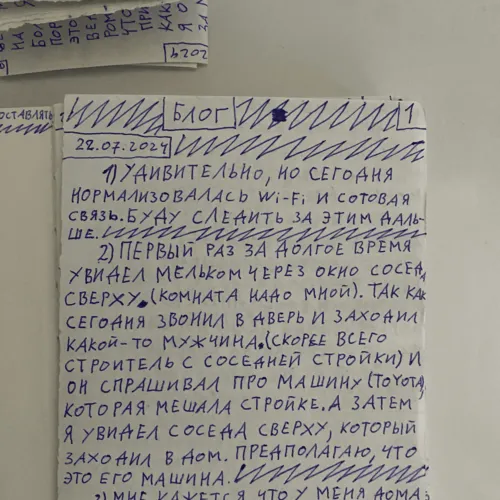 БЛОГ 1
28.07.2024
1) УДИВИТЕЛЬНО, НО СЕГОДНЯ
НОРМАЛИЗОВАЛАСЬ Wi-Fi И СОТОВАЯ
СВЯЗЬ. БУДУ СЛЕДИТЬ ЗА ЭТИМ ДАЛЬ-
ШЕ.
2) ПЕРВЫЙ РАЗ ЗА ДОЛГОЕ ВРЕМЯ
УВИДЕЛ МЕЛЬКОМ ЧЕРЕЗ ОКНО СОСЕД
СВЕРХУ. (КОМНАТА НАДО МНОЙ). ТАК КАК
СЕГОДНЯ ЗВОНИЛ В ДВЕРЬ И ЗАХОДИЛ
КАКОЙ-ТО МУЖЧИНА. (СКОРЕЕ ВСЕГО
СТРОИТЕЛЬ С СОСЕДНЕЙ СТРОЙКИ) И
ОН СПРАШИВАЛ ПРО МАШИНУ (TOYOTA),
КОТОРАЯ МЕШАЛА СТРОЙКЕ. А ЗАТЕМ
Я УВИДЕЛ СОСЕДА СВЕРХУ, КОТОРЫЙ
ЗАХОДИЛ В ДОМ. ПРЕДПОЛАГАЮ, ЧТО
ЭТО ЕГО МАШИНА.
3) МНЕ КАЖЕТСЯ ЧТО У МЕНЯ ДОМА